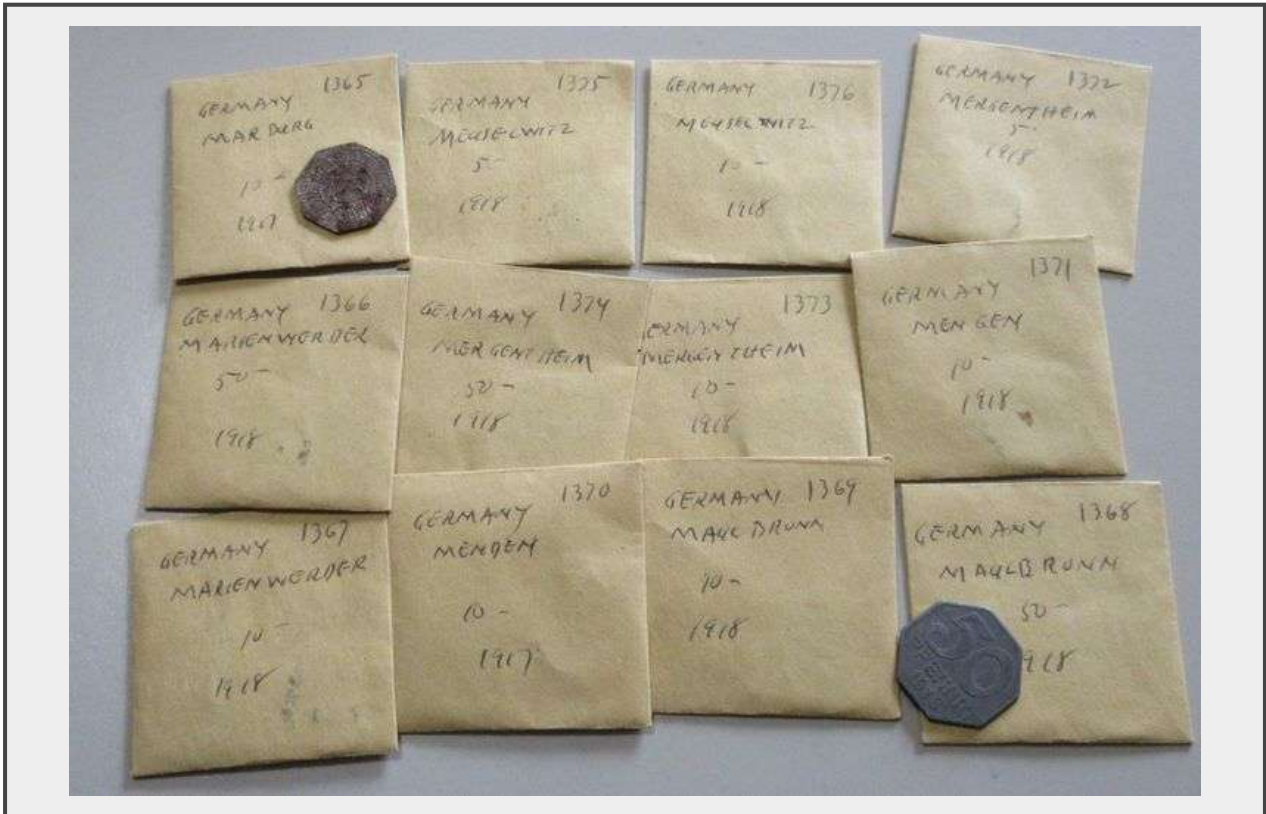 1365
GERMANY
MARBURG
10 -
1917
1375
GERMANY
MEUSELWITZ
5 -
1918
GERMANY 1376
MEUSELWITZ
10 -
1918
GERMANY 1372
MERGENTHEIM
5 -
1918
GERMANY 1366
MARIENWERDER
50 -
1918
GERMANY 1374
MERGENTHEIM
50 -
1918
1373
GERMANY
MERGENTHEIM
10 -
1918
1371
GERMANY
MENGEN
10 -
1918
GERMANY 1367
MARIENWERDER
10 -
1918
1370
GERMANY
MENDEN
10 -
1917
GERMANY 1369
MAULBRONN
10 -
1918
GERMANY 1368
MAULBRONN
50 -
1918
50
PFENNIG